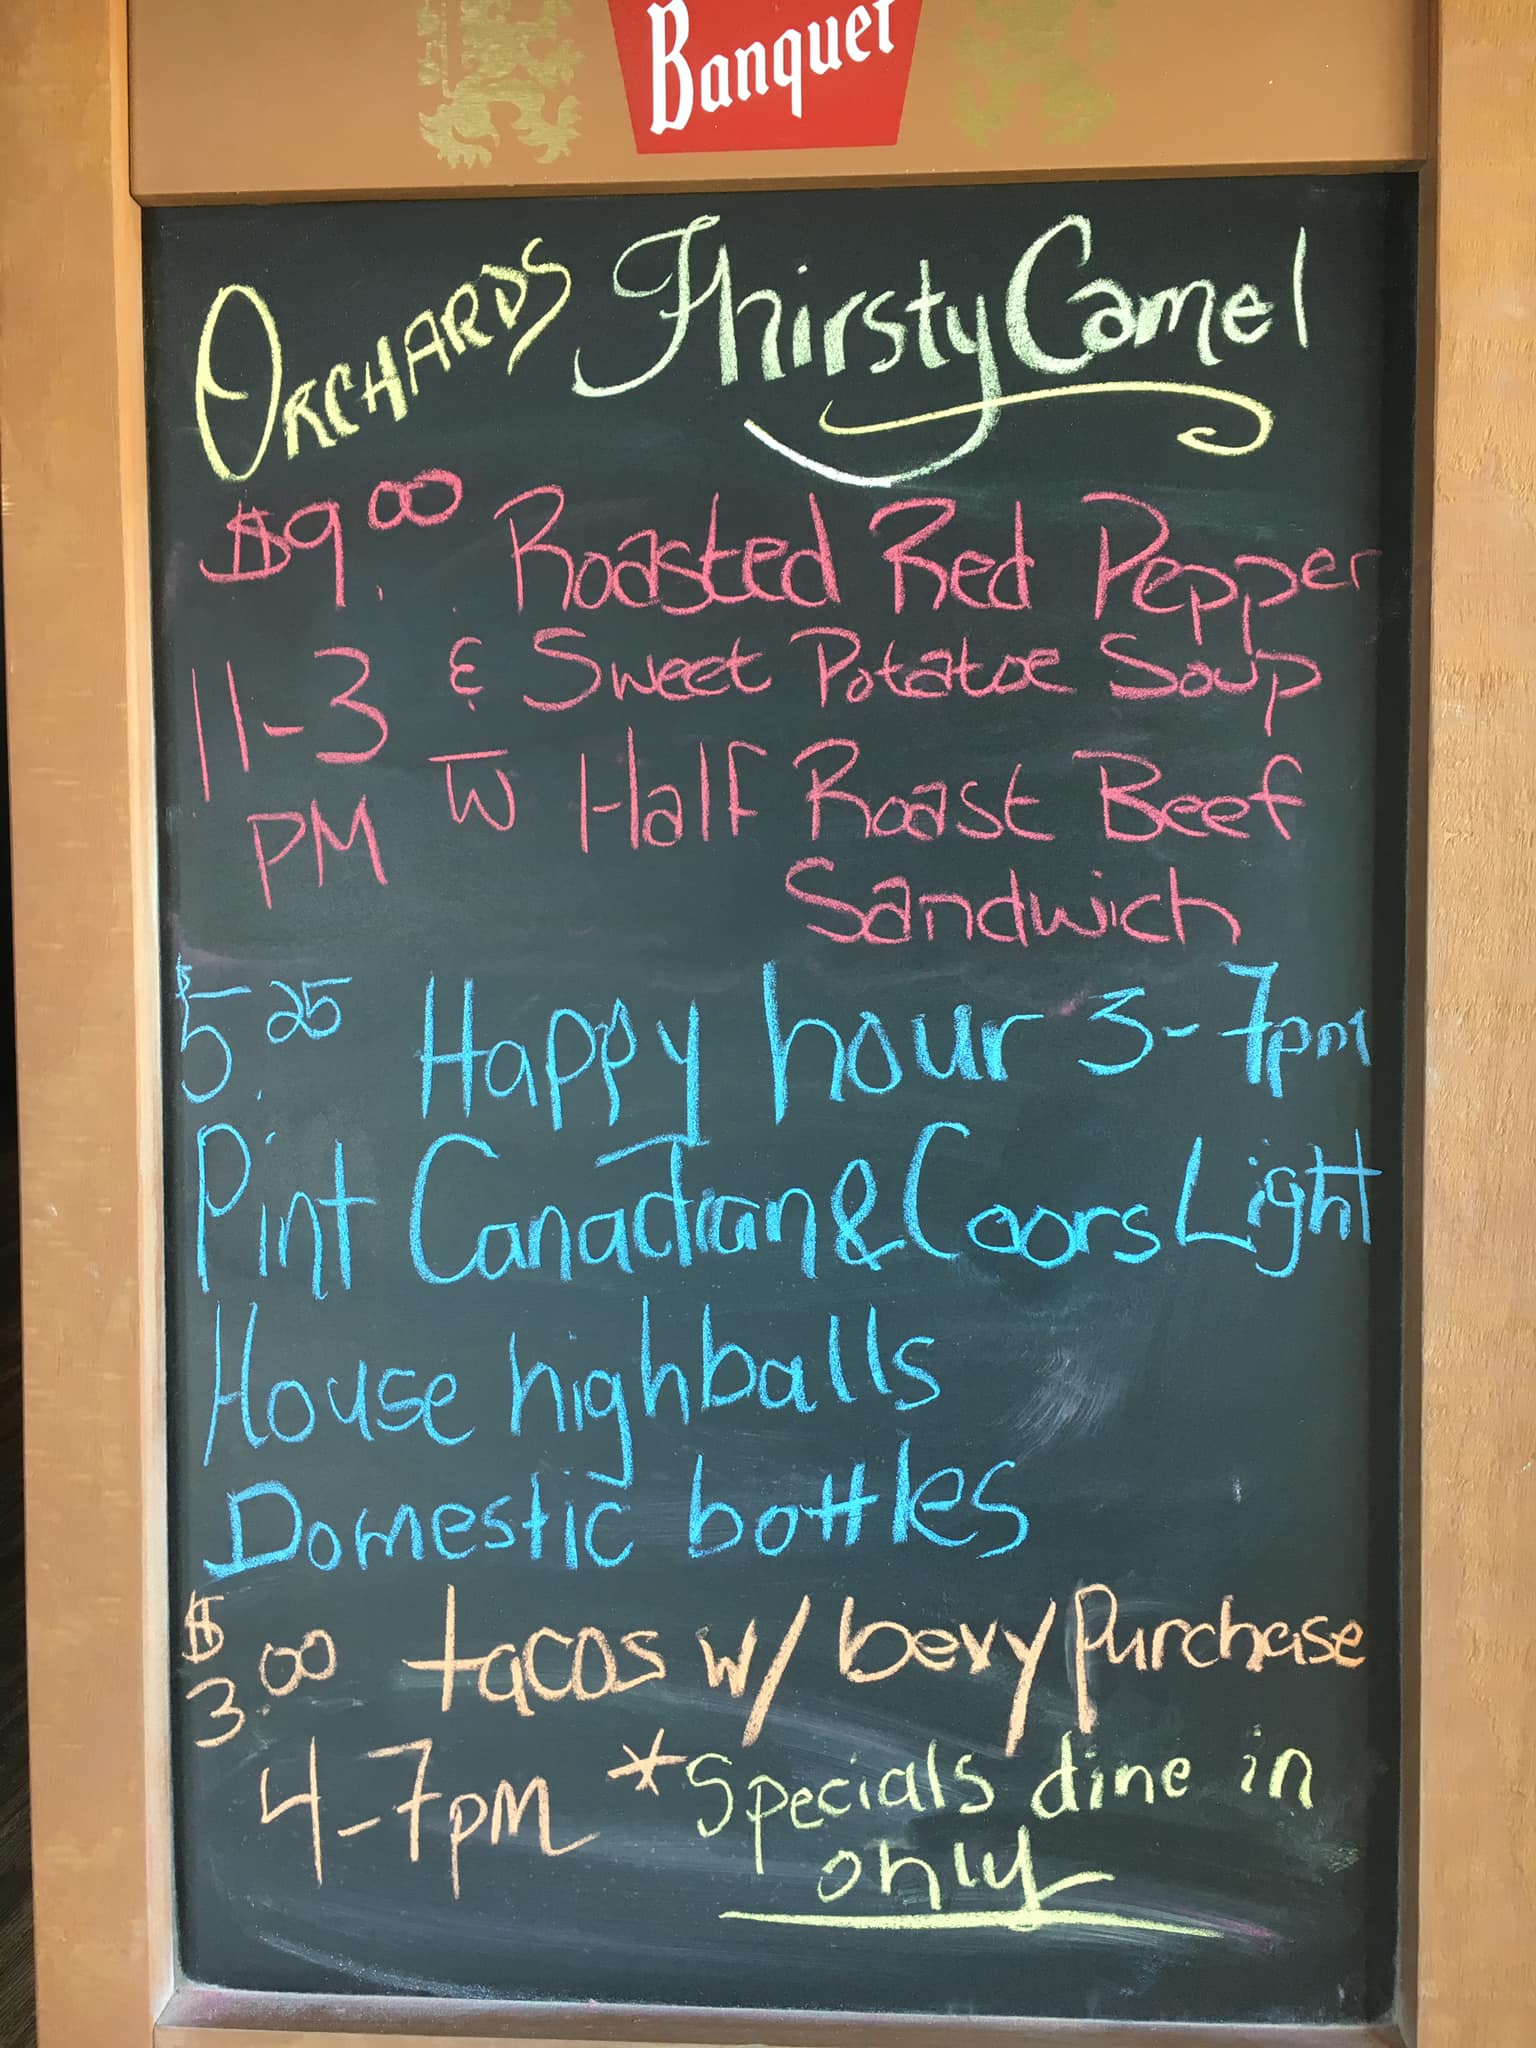 Banquet
ORCHARDS Thirsty Camel
$9.00 Roasted Red Pepper
& Sweet Potatoe Soup
11-3 PM w Half Roast Beef
Sandwich
$5.25 Happy hour 3-7pm
Pint Canadian & Coors Light
House highballs
Domestic bottles
$3.00 tacos w/ bevy Purchase
4-7pm *Specials dine in
only